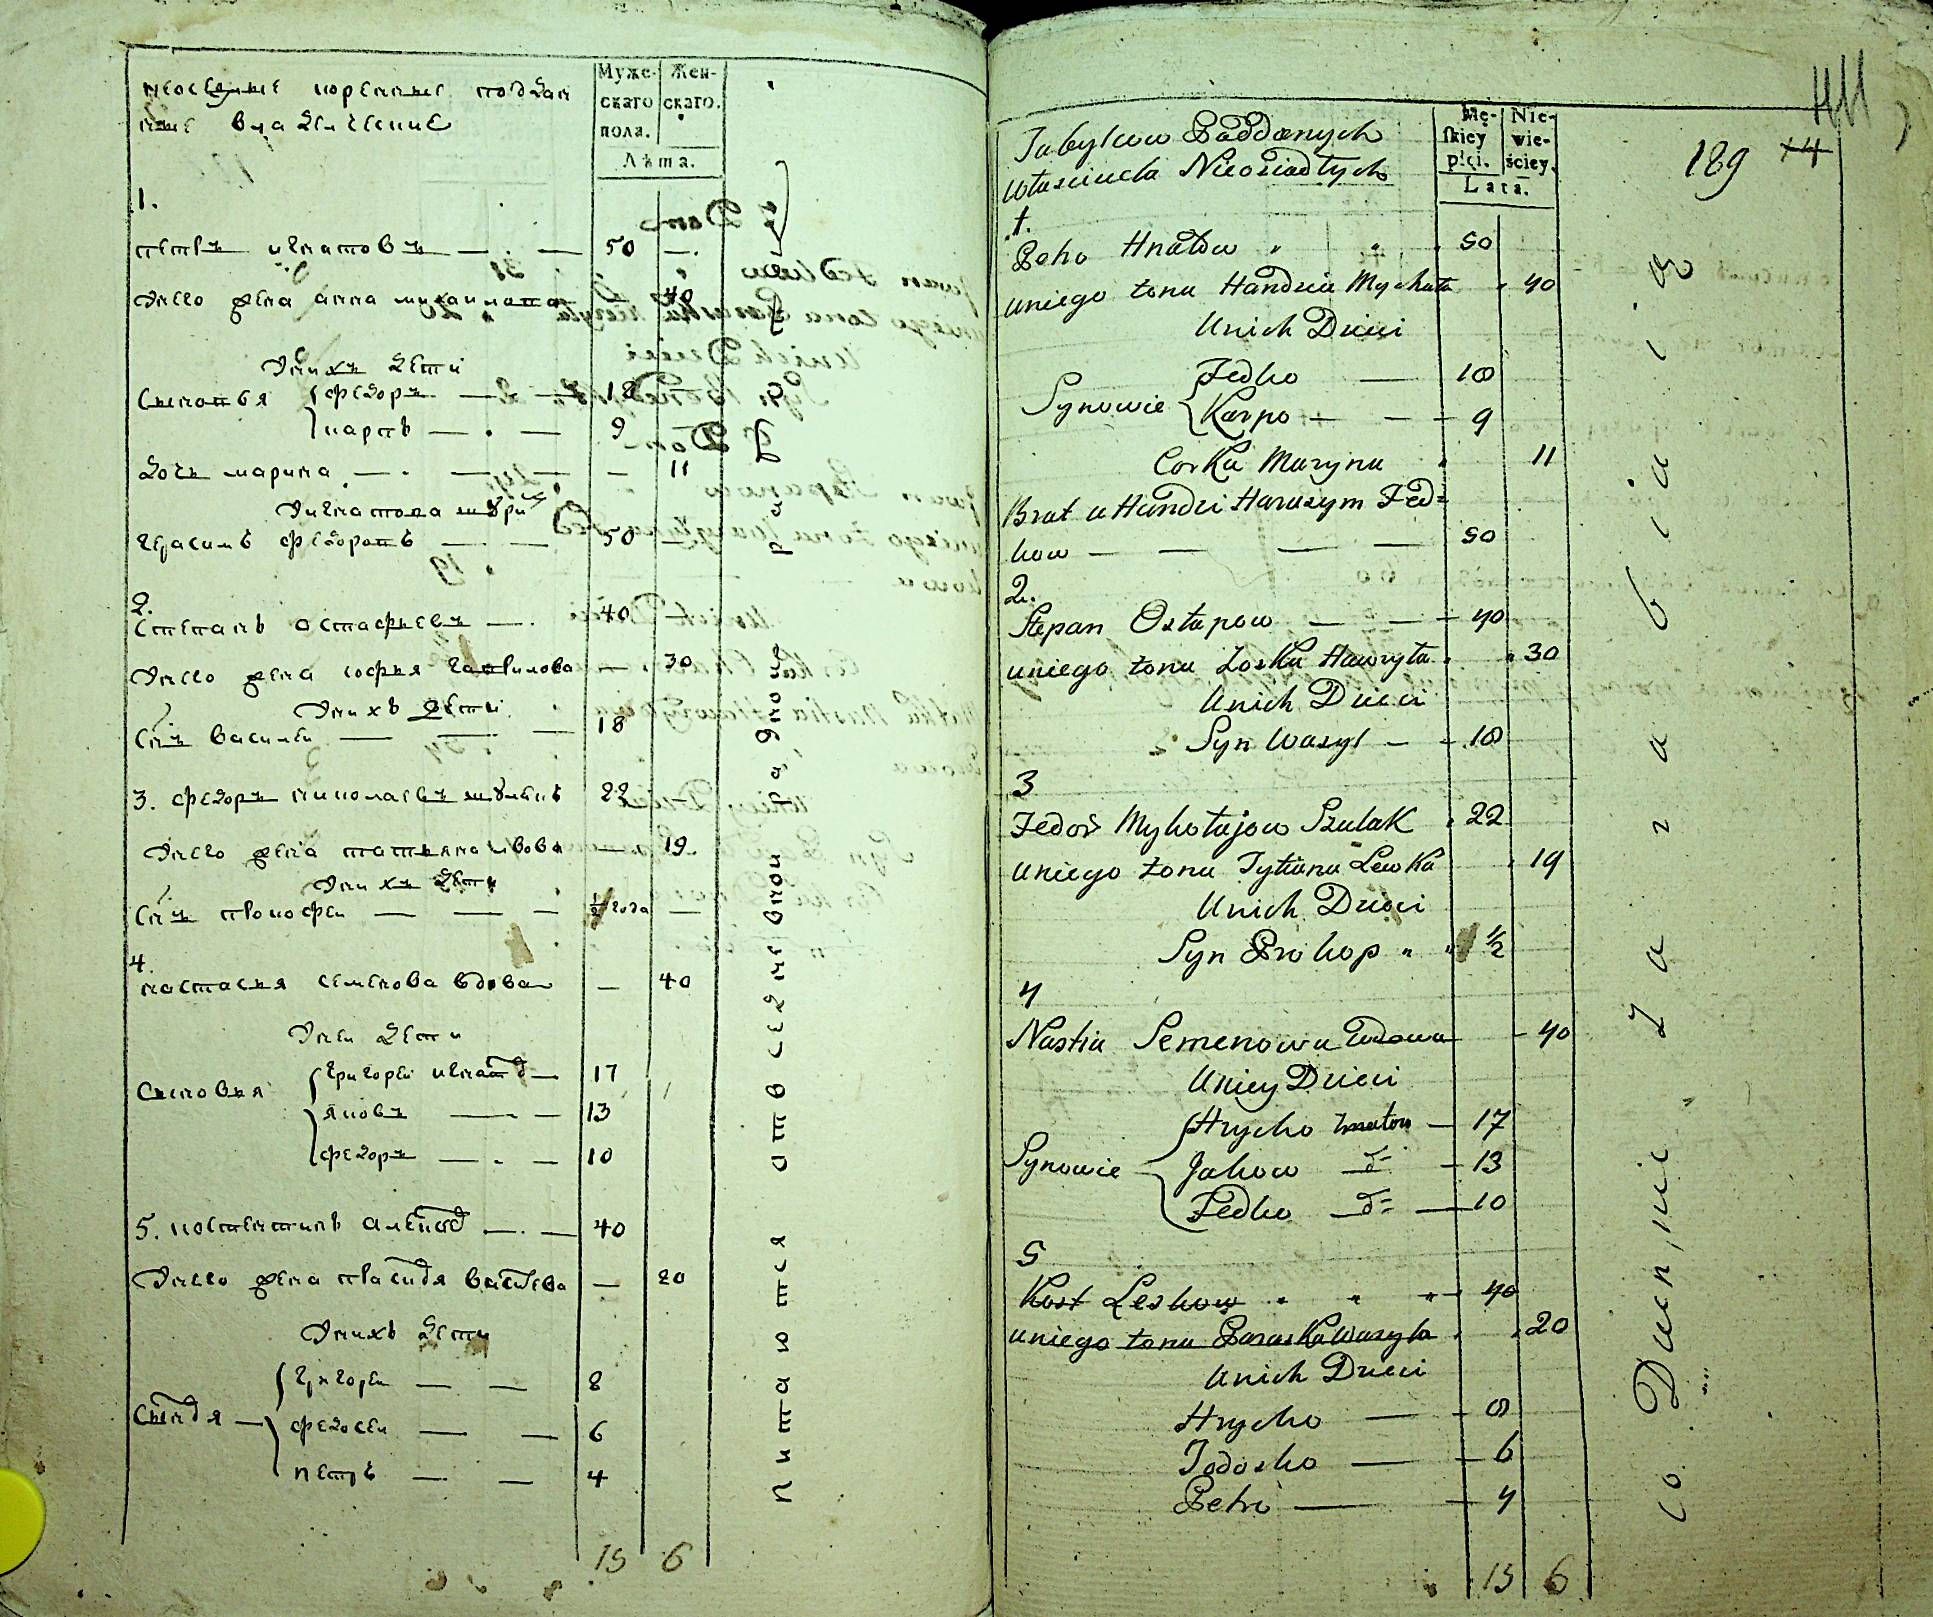 неоседлые коренные поддан
ные владелческие
Муже-
скаго
пола.
Жен-
скаго.
Лѣта.
1.
петръ игнатовъ — . — 50 —
Унего жена анна михаилова 40
Унихъ дети
Сыновья федоръ — — 18
карпъ — . — 9
дочь марина — . — — — 11
герасимъ федоровъ — — 50 —
2.
Степанъ остафьевъ — . 40 —
Унего жена софья гаврилова — . 30
Унихъ дети
Сынъ василеи — — — 18
3. федоръ николаевъ шулякъ 22
Унего жена татьяна львова — 19
Унихъ дети
Сынъ прокофеи — — — 1/2 года —
4.
настасья семенова вдова — 40
Унеи дети
Сыновья григореи игнатов — 17
яковъ — — 13
федоръ — . — 10
5. костентинъ — . — 40
Унего жена — 20
Унихъ дети
григореи — — 8
федосеи — — 6
петръ — — 4
15 6
питаются отъ
Tubylcow Poddanych
własciciela Nieosiadłych
Mę-
skiey
płci.
Nie-
wie-
ściey.
Lata.
189 74
1.
Petro Hnatow 50
uniego żona Handzia Mychała 40
Unich Dzieci
Synowie Fedko — 18
Karpo — — — 9
Corka Maryna 11
Brat u Handzi Harasym Fed=
kow — — — — 50
2.
Stepan Ostapow — — — 40
uniego żona Zoska Hawryła 30
Unich Dzieci
Syn Wasyl — — 18
3
Fedor Mykołajow Szulak 22
uniego żona Tytiana Lewka 19
Unich Dzieci
Syn Prokop 1/2
4
Nastia Semenowa Wdowa — 40
Uniey Dzieci
Synowie Hrycko Hnatow — 17
Jakow — d= — 13
Fedko — d= — 10
5
Kost Leskow 40
uniego żona Paraska Wasyla 20
Unich Dzieci
Hrycko — — 8
Fodosko — — 6
Petro — — 4
15 6
co Dzien,nie zarabiaią